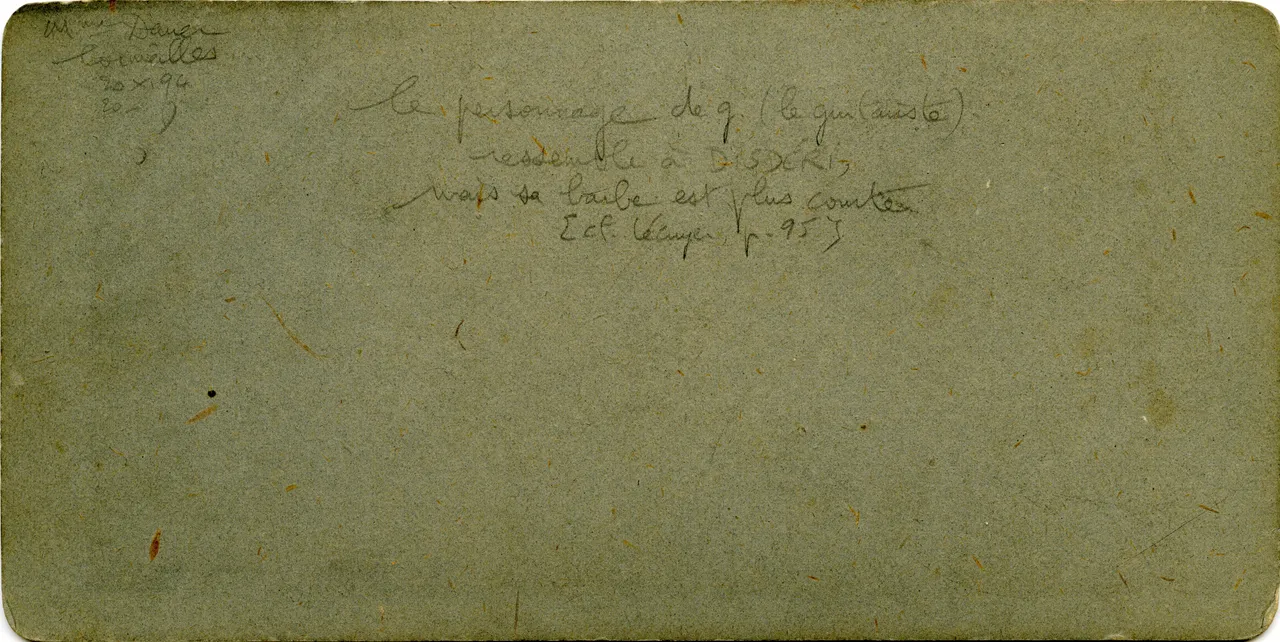 Mme
Cormeilles
20 XI 94
20 -
le personnage de g. (le guitariste)
ressemble à DISDÉRI,
mais sa barbe est plus courte
[cf. Lécuyer, p. 95]